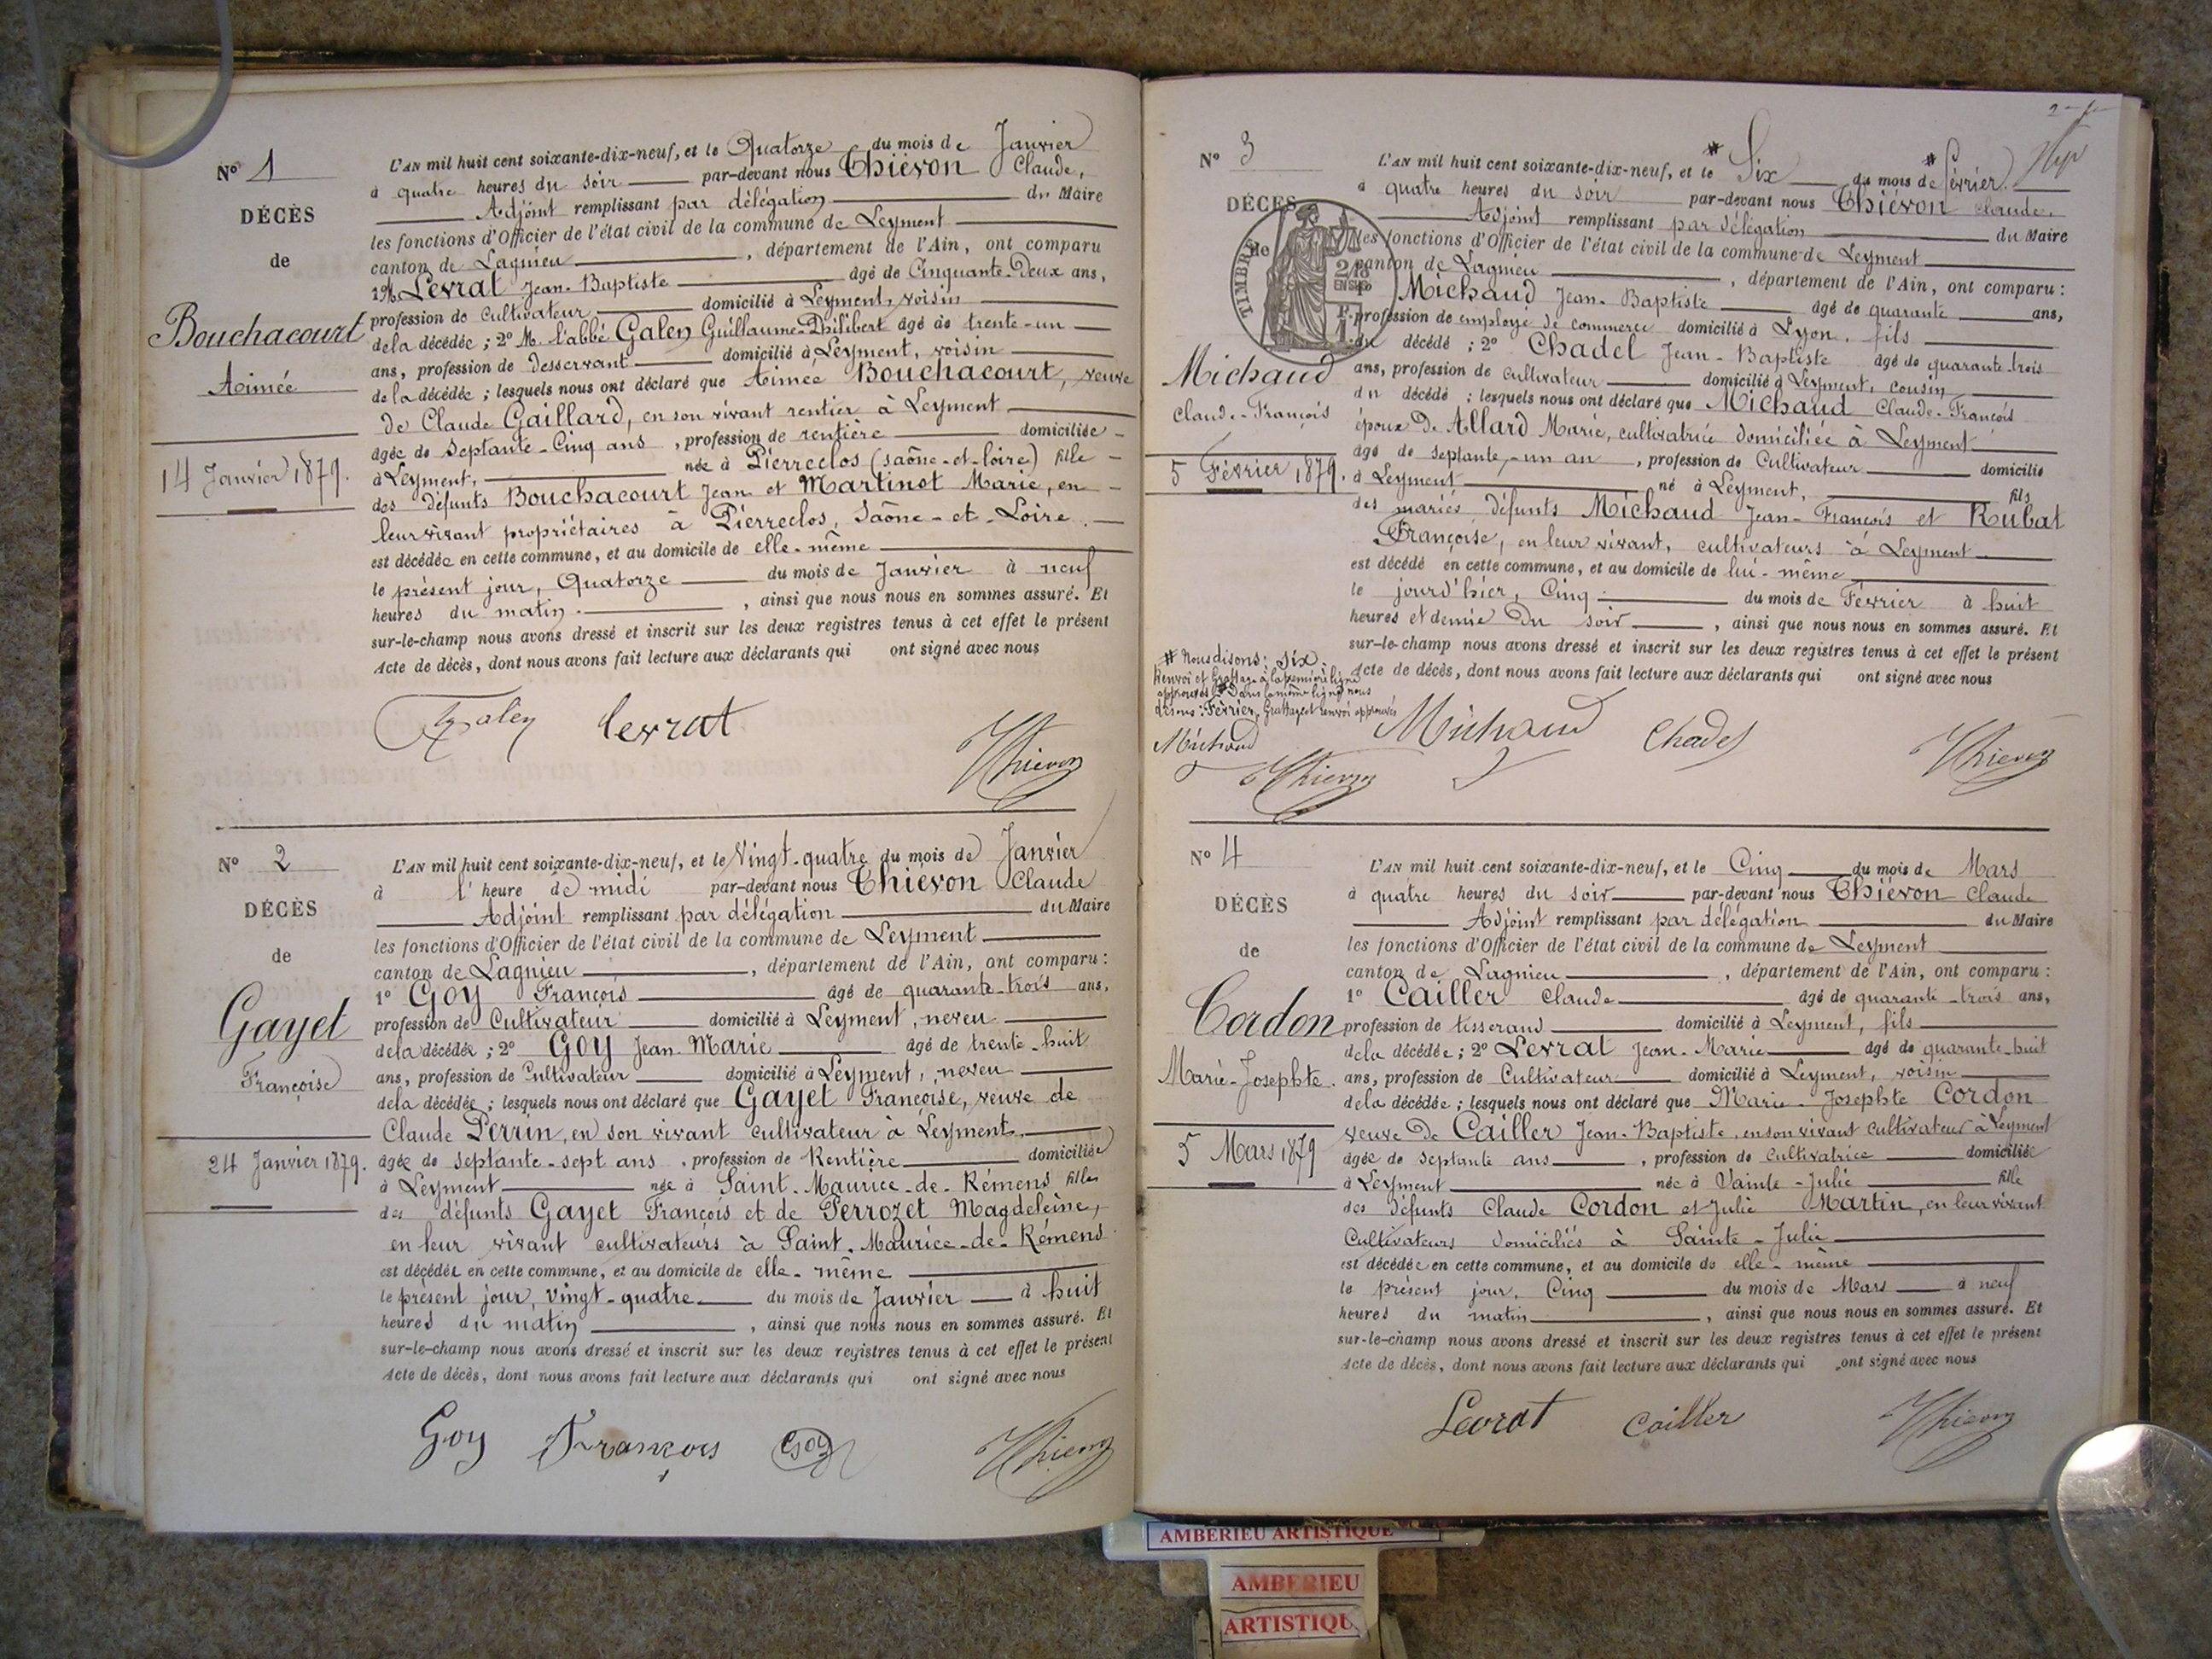 Nº 1
DÉCÈS
de
Bouchacourt
Aimée
14 Janvier 1879.
L'AN mil huit cent soixante-dix-neuf, et le Quatorze du mois de Janvier
à quatre heures du soir par-devant nous Thiévon Claude,
Adjoint remplissant par délégation du Maire
les fonctions d'Officier de l'état civil de la commune de Leyment
canton de Lagnieu, département de l'Ain, ont comparu
1º M. Levrat Jean-Baptiste âgé de Cinquante-Deux ans,
profession de Cultivateur domicilié à Leyment, voisin
de la décédée ; 2º M. l'abbé Galen Guillaume-Philibert âgé de trente-un
ans, profession de Desservant domicilié à Leyment, voisin
de la décédée ; lesquels nous ont déclaré que Aimée Bouchacourt, veuve
de Claude Gaillard, en son vivant rentier à Leyment
âgée de Septante-Cinq ans, profession de rentière domiciliée
à Leyment, née à Pierreclos (Saône-et-Loire) fille
des défunts Bouchacourt Jean et Martinot Marie, en
leur vivant propriétaires à Pierreclos, Saône-et-Loire.
est décédée en cette commune, et au domicile de elle-même
le présent jour, Quatorze du mois de Janvier à neuf
heures du matin, ainsi que nous nous en sommes assuré. Et
sur-le-champ nous avons dressé et inscrit sur les deux registres tenus à cet effet le présent
Acte de décès, dont nous avons fait lecture aux déclarants qui ont signé avec nous
Galen Levrat
Thievon
Nº 2
DÉCÈS
de
Gayet
Françoise
24 Janvier 1879.
L'AN mil huit cent soixante-dix-neuf, et le Vingt-quatre du mois de Janvier
à l'heure de midi par-devant nous Thiévon Claude
Adjoint remplissant par délégation du Maire
les fonctions d'Officier de l'état civil de la commune de Leyment
canton de Lagnieu, département de l'Ain, ont comparu :
1º Goy François âgé de quarante-trois ans,
profession de Cultivateur domicilié à Leyment, neveu
de la décédée ; 2º Goy Jean-Marie âgé de trente-huit
ans, profession de Cultivateur domicilié à Leyment, neveu
de la décédée ; lesquels nous ont déclaré que Gayet Françoise, veuve de
Claude Perrin, en son vivant cultivateur à Leyment
âgée de septante-sept ans, profession de Rentière domiciliée
à Leyment née à Saint-Maurice-de-Rémens fille
des défunts Gayet François et de Perrozet Magdeleine,
en leur vivant cultivateurs à Saint-Maurice-de-Rémens
est décédée en cette commune, et au domicile de elle-même
le présent jour, vingt-quatre du mois de Janvier à huit
heures du matin, ainsi que nous nous en sommes assuré. Et
sur-le-champ nous avons dressé et inscrit sur les deux registres tenus à cet effet le présent
Acte de décès, dont nous avons fait lecture aux déclarants qui ont signé avec nous
Goy François Goy
Thievon
Nº 3
DÉCÈS
de
TIMBRE
Michaud
Claude-François
5 Février 1879.
L'AN mil huit cent soixante-dix-neuf, et le # Six du mois de # Février.
à quatre heures du soir par-devant nous Thiévon Claude.
Adjoint remplissant par délégation du Maire
les fonctions d'Officier de l'état civil de la commune de Leyment
canton de Lagnieu, département de l'Ain, ont comparu :
Michaud Jean-Baptiste âgé de quarante ans,
profession de employé de commerce domicilié à Lyon, fils
du décédé ; 2º Chadel Jean-Baptiste âgé de quarante-trois
ans, profession de Cultivateur domicilié à Leyment, cousin
du décédé ; lesquels nous ont déclaré que Michaud Claude-François
époux de Allard Marie, cultivatrice domiciliée à Leyment
âgé de septante-un an, profession de Cultivateur domicilié
à Leyment né à Leyment, fils
des mariés défunts Michaud Jean-François et Rubat
Françoise, en leur vivant, cultivateurs à Leyment
est décédé en cette commune, et au domicile de lui-même
le jourd'hier, Cinq du mois de Février à huit
heures et demie du soir, ainsi que nous nous en sommes assuré. Et
sur-le-champ nous avons dressé et inscrit sur les deux registres tenus à cet effet le présent
Acte de décès, dont nous avons fait lecture aux déclarants qui ont signé avec nous
# Nous disons : Six.
Renvoi et Grattage à la première ligne
approuvés # Dans la même ligne nous
disons : Février. Grattage et renvoi approuvés
Michaud
Thievon
Michaud Chadel
Thievon
Nº 4
DÉCÈS
de
Cordon
Marie-Josephte.
5 Mars 1879
L'AN mil huit cent soixante-dix-neuf, et le Cinq du mois de Mars
à quatre heures du soir par-devant nous Thiévon Claude
Adjoint remplissant par délégation du Maire
les fonctions d'Officier de l'état civil de la commune de Leyment
canton de Lagnieu, département de l'Ain, ont comparu :
1º Cailler Claude âgé de quarante-trois ans,
profession de tisserand domicilié à Leyment, fils
de la décédée ; 2º Levrat Jean-Marie âgé de quarante-huit
ans, profession de Cultivateur domicilié à Leyment, voisin
de la décédée ; lesquels nous ont déclaré que Marie-Josephte Cordon
veuve de Cailler Jean-Baptiste, en son vivant Cultivateur à Leyment
âgée de Septante ans, profession de Cultivatrice domiciliée
à Leyment née à Sainte-Julie fille
des défunts Claude Cordon et Julie Martin, en leur vivant
Cultivateurs domiciliés à Sainte-Julie
est décédée en cette commune, et au domicile de elle-même
le présent jour, Cinq du mois de Mars à neuf
heures du matin, ainsi que nous nous en sommes assuré. Et
sur-le-champ nous avons dressé et inscrit sur les deux registres tenus à cet effet le présent
Acte de décès, dont nous avons fait lecture aux déclarants qui ont signé avec nous
Levrat Cailler
Thievon
AMBERIEU ARTISTIQUE
AMBERIEU
ARTISTIQU